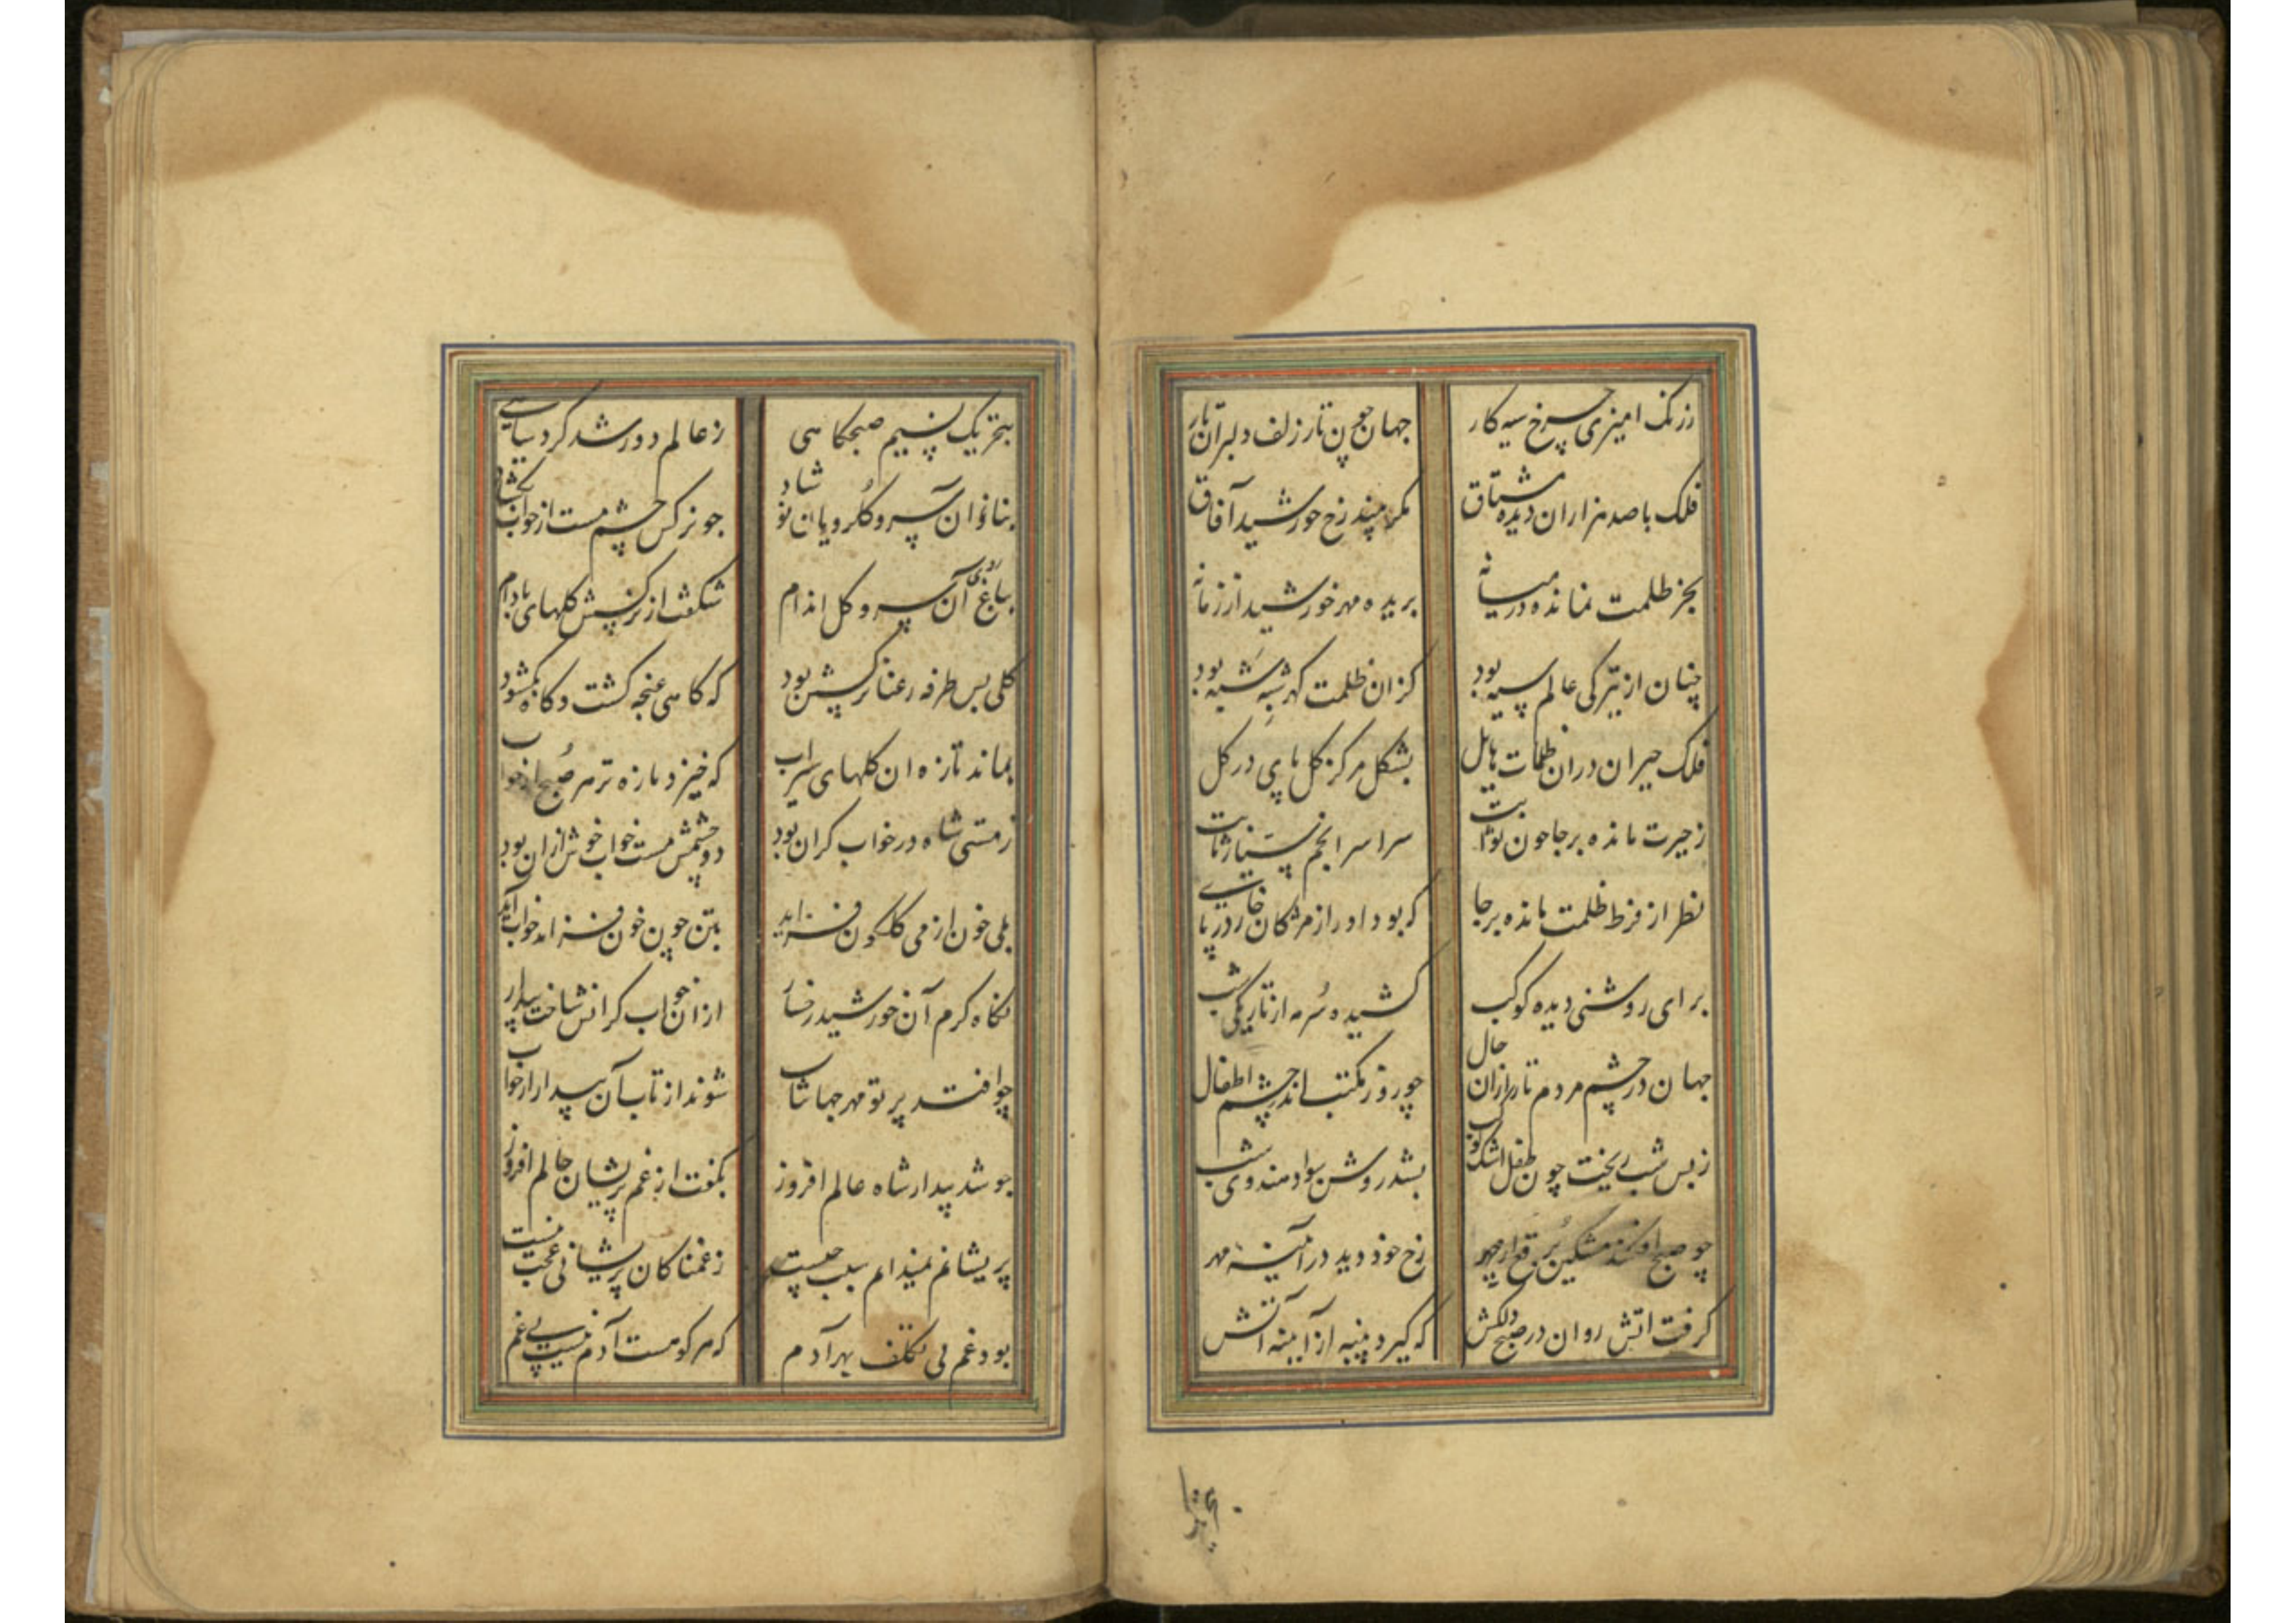 زرنک امیزی چرخ سیه کار جهان چون تار زلف دلبران تار
فلک باصد هزاران دیده مشتاق مکر بیند رخ خورشید آفاق
بجز ظلمت نمانده در میانه بریده مهر خورشید از زمانه
چنان از تیرکی عالم سیه بود کزان ظلمت کهر شبه شبه بود
فلک حیران دران ظلمات هایل بشکل مرکز کل پای در کل
زحیرت مانده برجا چون ثوابت سراسر انجم سیار ثابت
نظر از فرط ظلمت مانده برجا که بود اورا ز مژکان خار در پا
برای روشنی دیده کوکب کشیده سُرمه از تاریکی شب
جهان در چشم مردم تار ازان حال چو روز مکتب اندر چشم اطفال
زبس شب ریخت چون طفل اشک کوکب بشد روشن سواد هندوی شب
چو صبح افکند مشکین بُرقع از چهر رخ خود دید در آئینه مهر
کرفت اتش روان در صبح دلکش که کیرد پنبه از آیینه آتش
بتحریک نسیم صبحکاهی زعالم دور شد کرد سیاهی
آن سرو کلرویان نوشاد چو نرکس چشم مست از خواب بکشاد
بباغ روی آن سرو کل اندام شکفت از نرکسش کلهای بادام
کلی بس طرفه رعنا نرکسش بود که کاهی غنچه کشت و کاه بکشود
بماند تازه ان کلهای سیراب که خیزد تازه تر هر صُبح از خواب
زمستی شاه در خواب کران بود دو چشمش مست خواب خوش ازان بود
بلی خون از می کلکون فزاید بتن چون خون فزاید خواب آید
نکاه کرم آن خورشید رخسار ازان خواب کرانش ساخت بیدار
چو افتد پرتو مهر جهانتاب شوند از تاب آن بیدار از خواب
چو شد بیدار شاه عالم افروز بکفت از غم پریشان جانم امروز
پریشانم نمیدانم سبب چیست زغمناکان پریشانی عجب نیست
بود غم بی تکلف بهر آدم که هر کو هست آدم نیست بی غم
بتحریک